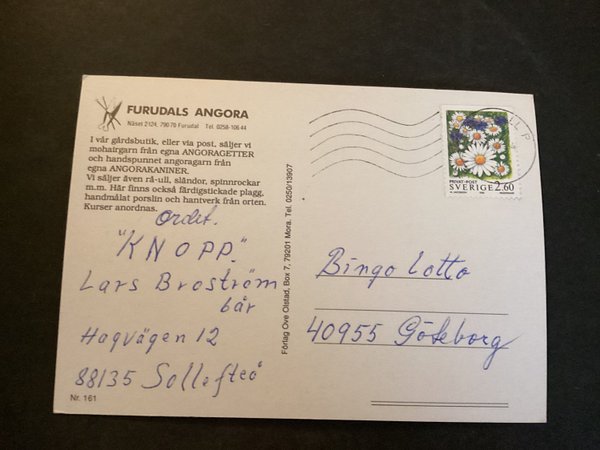 FURUDALS ANGORA
Näsel 2124, 790 70 Furudal Tel. 0258-106 44
I vår gårdsbutik, eller via post, säljer vi
mohairgarn från egna ANGORAGETTER
och handspunnet angoragarn från
egna ANGORAKANINER.
Vi säljer även rå-ull, sländor, spinnrockar
m.m. Här finns också färdigstickade plagg,
handmålat porslin och hantverk från orten.
Kurser anordnas.
ordet.
"KNOPP."
Lars Broström
bår
Hagvägen 12
88135 Sollefteå
Nr. 161
Förlag Ove Olstad, Box 7, 79201 Mora. Tel. 0250/13907
PRIVAT-POST
SVERIGE 2.60
Bingo Lotto
40955 Göteborg